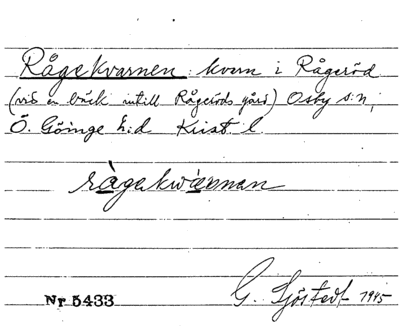 Rågekvarnen kvarn i Rågeröd
(vid en bäck intill Rågeröds gård) Osby s:n,
Ö. Göinge h:d Krist l.
rågekwiernan
Nr 5433 G. Sjöstedt 1945